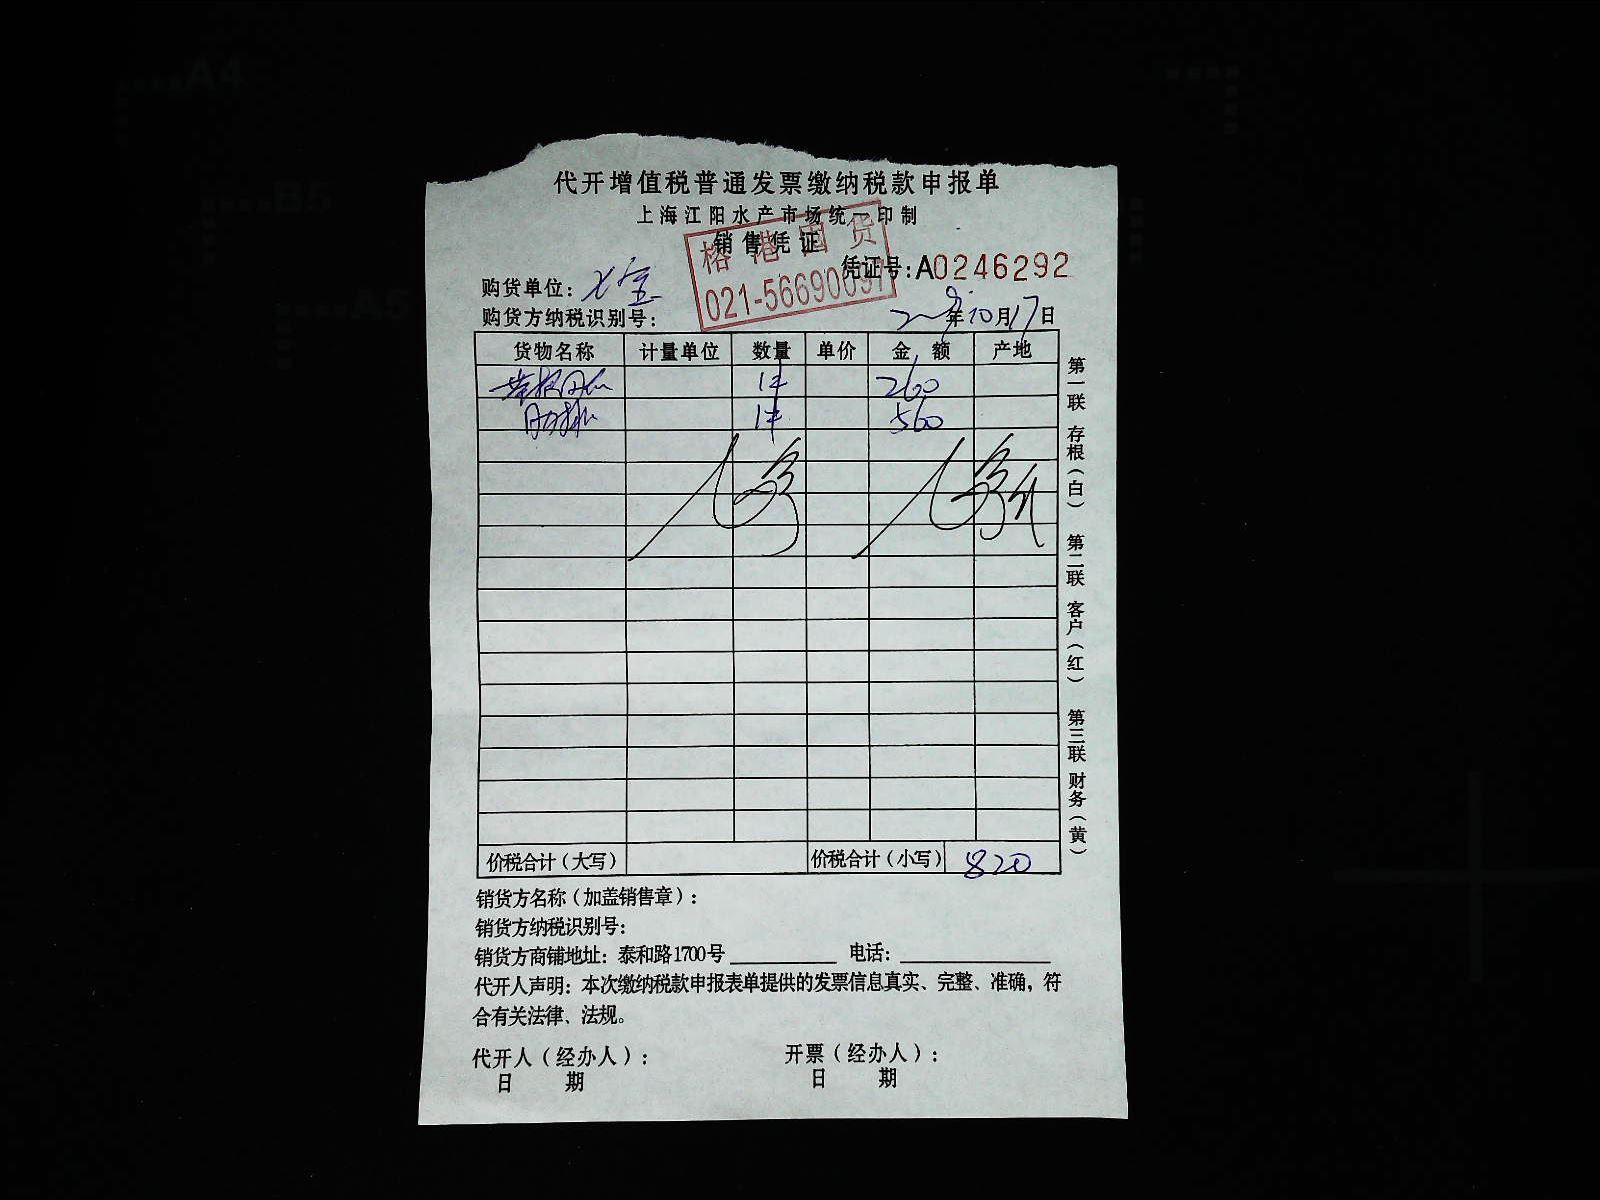 代开增值税普通发票缴纳税款申报单
上海江阳水产市场统一印制
销售凭证
榕港国货
021-56690097
凭证号:A0246292
购货单位: 七宝
购货方纳税识别号:
年10月17日
货物名称 计量单位 数量 单价 金 额 产地
1件 260
1件 560
价税合计(大写) 价税合计(小写) 820
第一联 存根(白) 第二联 客户(红) 第三联 财务(黄)
销货方名称(加盖销售章):
销货方纳税识别号:
销货方商铺地址: 泰和路1700号 电话:
代开人声明: 本次缴纳税款申报表单提供的发票信息真实、完整、准确, 符
合有关法律、法规。
代开人(经办人): 开票(经办人):
日 期 日 期
A4
B5
A5